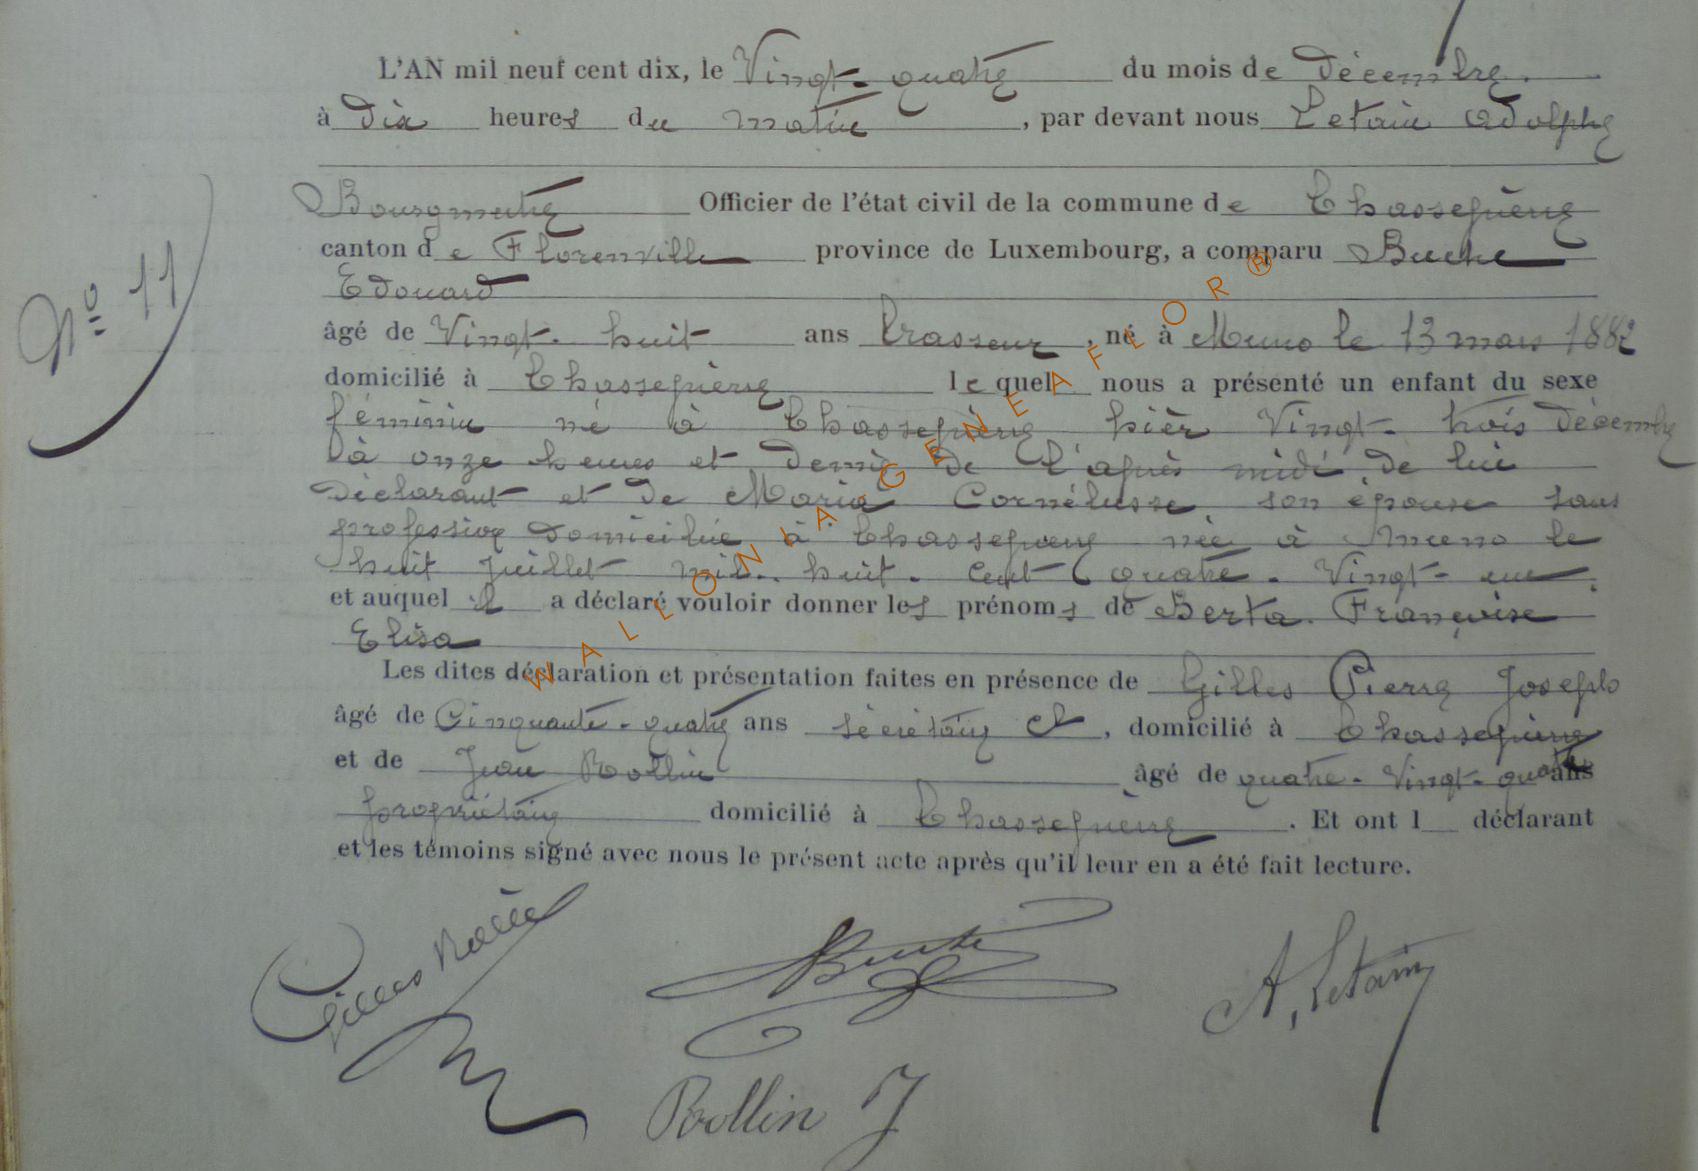 L'AN mil neuf cent dix, le Vingt-quatre du mois de Décembre.
à dix heures du matin, par devant nous Letain Adolphe
Bourgmestre Officier de l'état civil de la commune de Chassepierre
canton de Florenville province de Luxembourg, a comparu
Edouard
âgé de Vingt-huit ans brasseur, né à Muno le 13 mars 1882
domicilié à Chassepierre lequel nous a présenté un enfant du sexe
N° 11
féminin né à Chassepierre hièr Vingt-trois Décembre
à onze heures et demie de l'après midi de lui
déclarant et de Maria Cornélusse son épouse sans
profession domiciliée à Chassepierre née à Muno le
huit Juillet mil-huit-cent quatre-Vingt-un.
et auquel il a déclaré vouloir donner les prénoms de Berta. Françoise
Elisa
Les dites déclaration et présentation faites en présence de Gilles Pierre Joseph
âgé de Cinquante-quatre ans sécrétaire Cl, domicilié à Chassepierre
et de Jean Rollin âgé de quatre-Vingt-quatre ans
propriétaire domicilié à Chassepierre. Et ont l déclarant
et les témoins signé avec nous le présent acte après qu'il leur en a été fait lecture.
WALLONIA-GENEAFLOR®
Gilles
A, Letain
Rollin J